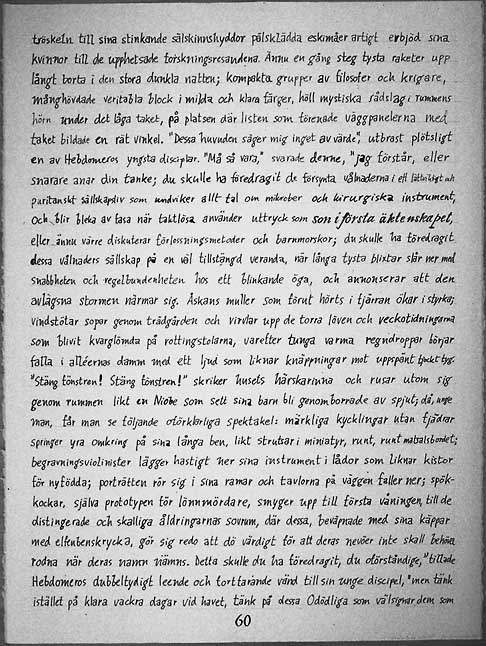 tröskeln till sina stinkande sälskinnshyddor pälsklädda eskimåer artigt erbjöd sina
kvinnor till de upphetsade forskningsresandena. Ännu en gång steg tysta raketer upp
långt borta i den stora dunkla natten; kompakta grupper av filosofer och krigare,
månghövdade veritabla block i milda och klara färger, höll mystiska rådslag i rummens
hörn under det låga taket, på platsen där listen som förenade väggpanelerna med
taket bildade en rät vinkel. "Dessa huvuden säger mig inget av värde", utbrast plötsligt
en av Hebdomeros yngsta disciplar. "Må så vara," svarade denne, "jag förstår, eller
snarare anar din tanke; du skulle ha föredragit de försynta vålnaderna i ett lättviktigt och
puritanskt sällskapsliv som undviker allt tal om mikrober och kirurgiska instrument,
och blir bleka av fasa när taktlösa använder uttryck som son i första äktenskapet,
eller ännu värre diskuterar förlossningsmetoder och barnmorskor; du skulle ha föredragit
dessa vålnaders sällskap på en väl tillstängd veranda, när långa tysta blixtar slår ner med
snabbheten och regelbundenheten hos ett blinkande öga, och annonserar att den
avlägsna stormen närmar sig. Åskans muller som förut hörts i fjärran ökar i styrka;
vindstötar sopar genom trädgården och virvlar upp de torra löven och veckotidningarna
som blivit kvarglömda på rottingstolarna, varefter tunga varma regndroppar börjar
falla i alléernas damm med ett ljud som liknar knäppningar mot uppspänt tjockt tyg.
"Stäng fönstren! Stäng fönstren!" skriker husets härskarinna och rusar utom sig
genom rummen likt en Niobe som sett sina barn bli genomborrade av spjut; då, unge
man, får man se följande oförklarliga spektakel: märkliga kycklingar utan fjädrar
springer yra omkring på sina långa ben, likt strutsar i miniatyr, runt, runt matsalsbordet;
begravningsviolinister lägger hastigt ner sina instrument i lådor som liknar kistor
för nyfödda; porträtten rör sig i sina ramar och tavlorna på väggen faller ner; spök-
kockar, själva prototypen för lönnmördare, smyger upp till första våningen, till de
distingerade och skalliga åldringarnas sovrum, där dessa, beväpnade med sina käppar
med elfenbenskrycka, gör sig redo att dö värdigt för att deras nevöer inte skall behöva
rodna när deras namn nämns. Detta skulle du ha föredragit, du oförståndige," tillade
Hebdomeros dubbeltydigt leende och fortfarande vänd till sin unge discipel, "men tänk
istället på klara vackra dagar vid havet, tänk på dessa Odödliga som välsignar dem som
60